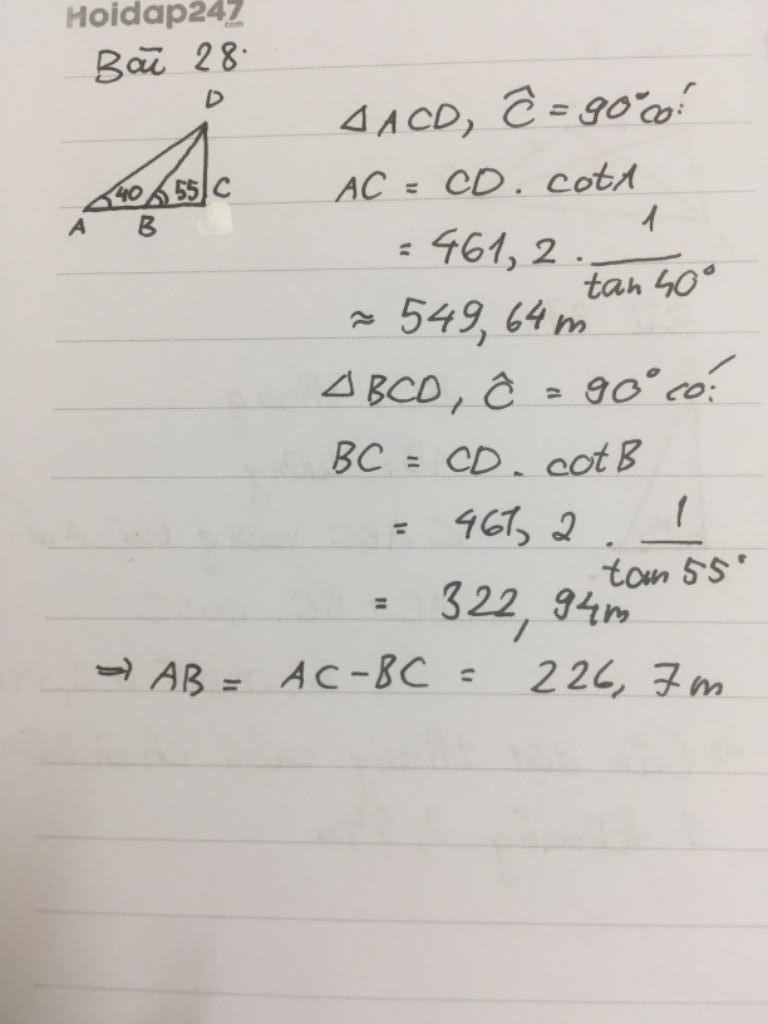 Hoidap247
.com
Bài 28.
D
40 55 C
A B
△ACD, Ĉ = 90° có:
AC = CD . cot1
= 461,2 . 1/tan 40°
≈ 549,64m
△BCD, Ĉ = 90° có:
BC = CD . cotB
= 461,2 . 1/tan 55°
= 322,94m
⇒ AB = AC - BC = 226,7m